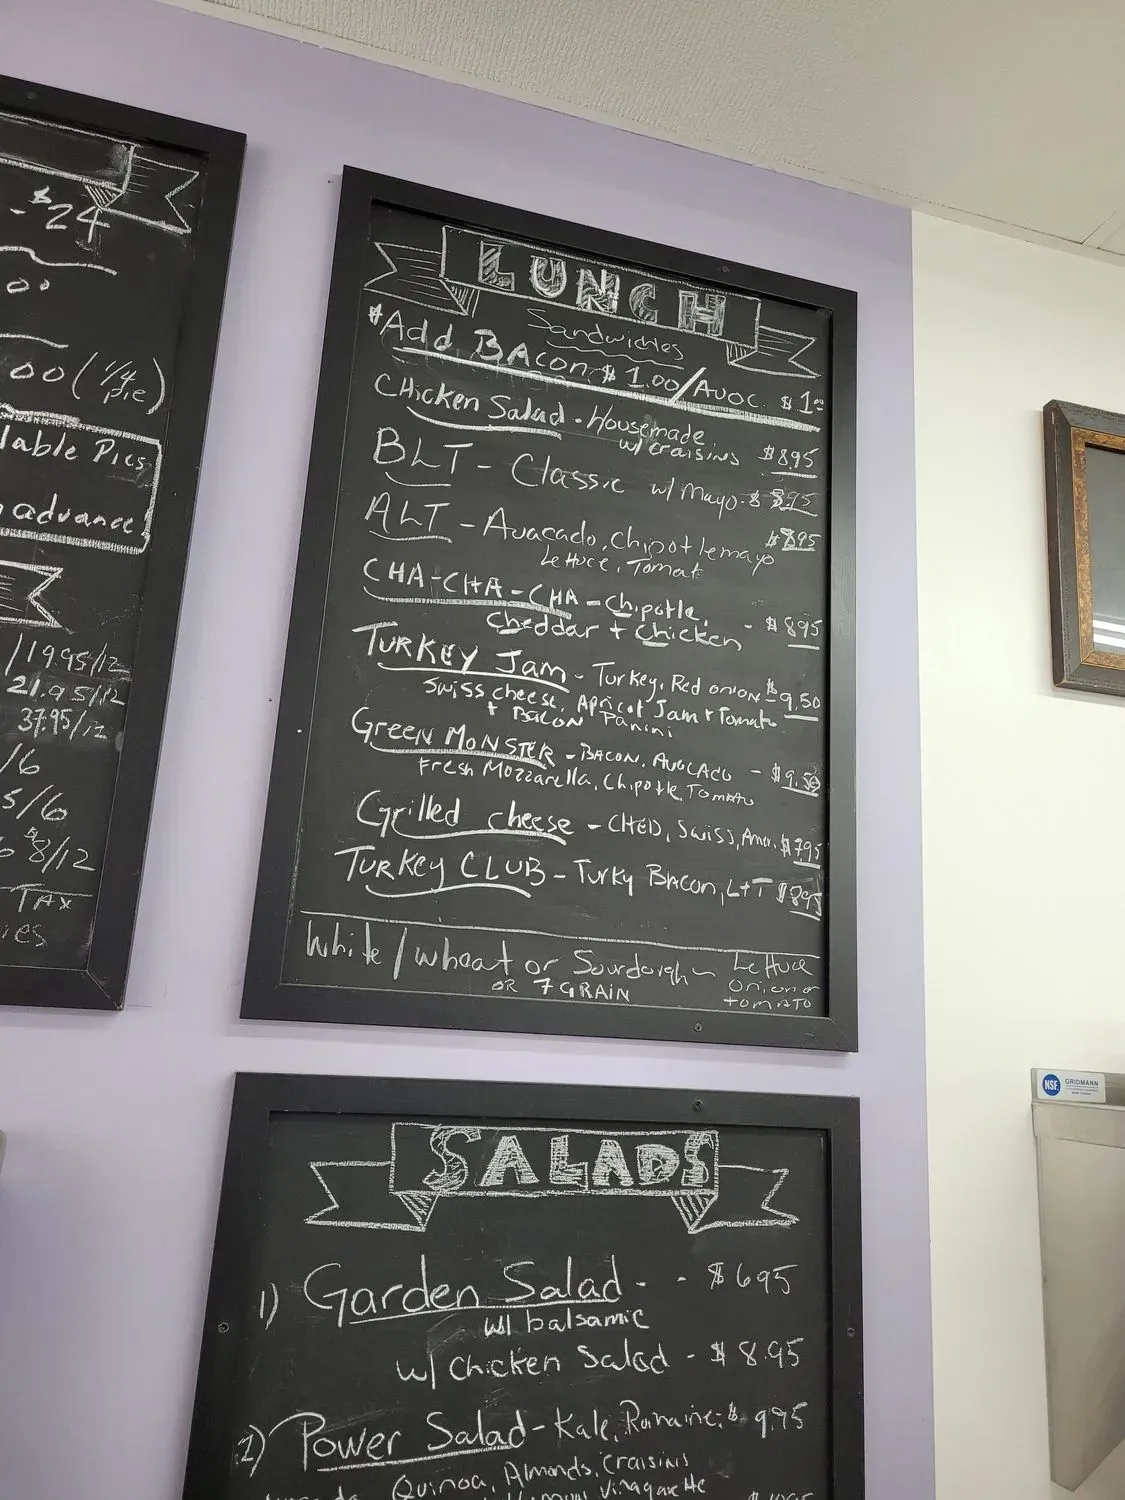 - $24
00
00 (1/4 pie)
lable Pies
advance.
119.95/12
21.95/12
37.95/12
/6
5/6
$8/12
TAX
ies
LUNCH
Sandwiches
*Add BAcon $1.00/Avoc. $1.00
CHicken Salad - Housemade
w/ craisins $8.95
BLT - Classic w/ Mayo - $8.95
ALT - Avacado, Chipotle mayo $8.95
Lettuce, Tomat
CHA-CHA-CHA - Chipotle,
Cheddar + Chicken - $8.95
TURKEY Jam - Turkey, Red onion - $9.50
Swiss cheese, Apricot Jam + Tomato
+ BACON Panini
GREEN MONSTER - BACON, AVOCADO - $9.50
Fresh Mozzarella, Chipotle, Tomato
Grilled cheese - CHED, Swiss, Amer. $7.95
TURKEY CLUB - Turky Bacon, L+T $8.95
White/wheat or Sourdough ~ Lettuce
OR 7 GRAIN
Onion or
tomato
NSF GRIDMANN
SALADS
1) Garden Salad - - $6.95
w/ balsamic
w/ Chicken Salad - $8.95
2) Power Salad - Kale, Romaine, $9.95
Quinoa, Almonds, craisins
Vinagarette